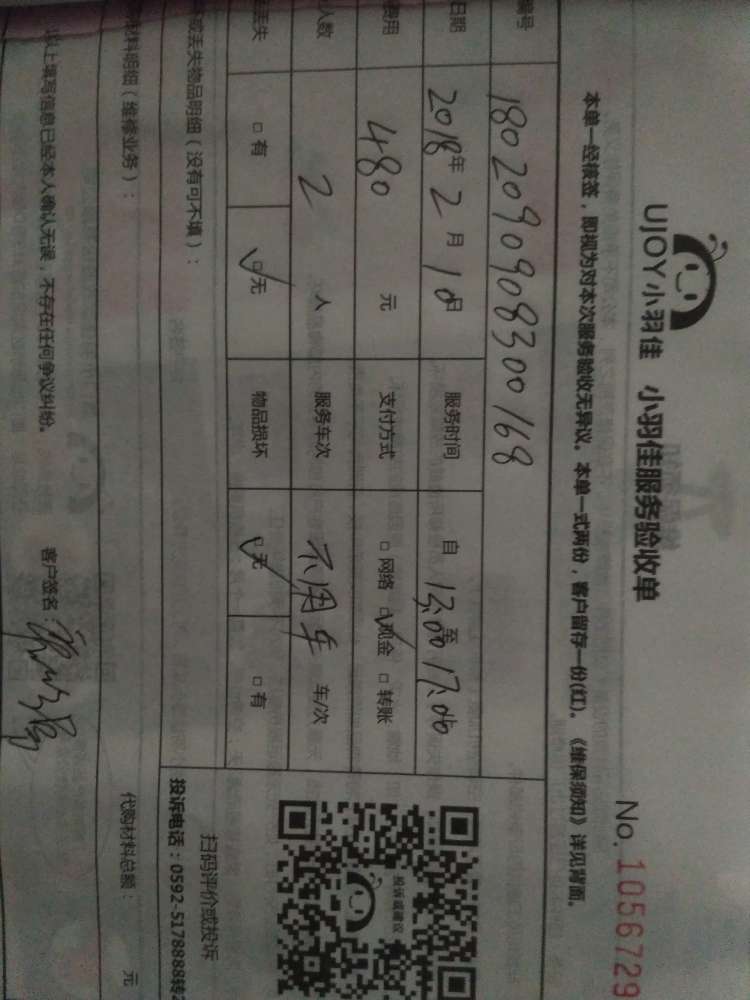 UJOY小羽佳 小羽佳服务验收单
No. 1056729
本单一经核签，即视为对本次服务验收无异议。本单一式两份，客户留存一份(红)。《维保须知》详见背面。
编号 18020909083001 68
日期 2018年2月10日 服务时间 自 13:00 至 17:00
费用 480 元 支付方式 □ 网络 ☑ 现金 □ 转账
人数 2 人 服务车次 不用车 车/次
丢失 □ 有 ☑ 无 物品损坏 ☑ 无 □ 有
或丢失物品明细（没有可不填）：
材料明细（维修业务）：
代购材料总额： 元
以上填写信息已经本人确认无误，不存在任何争议纠纷。
客户签名：
投诉或建议
扫码评价或投诉
投诉电话：0592-5178888转